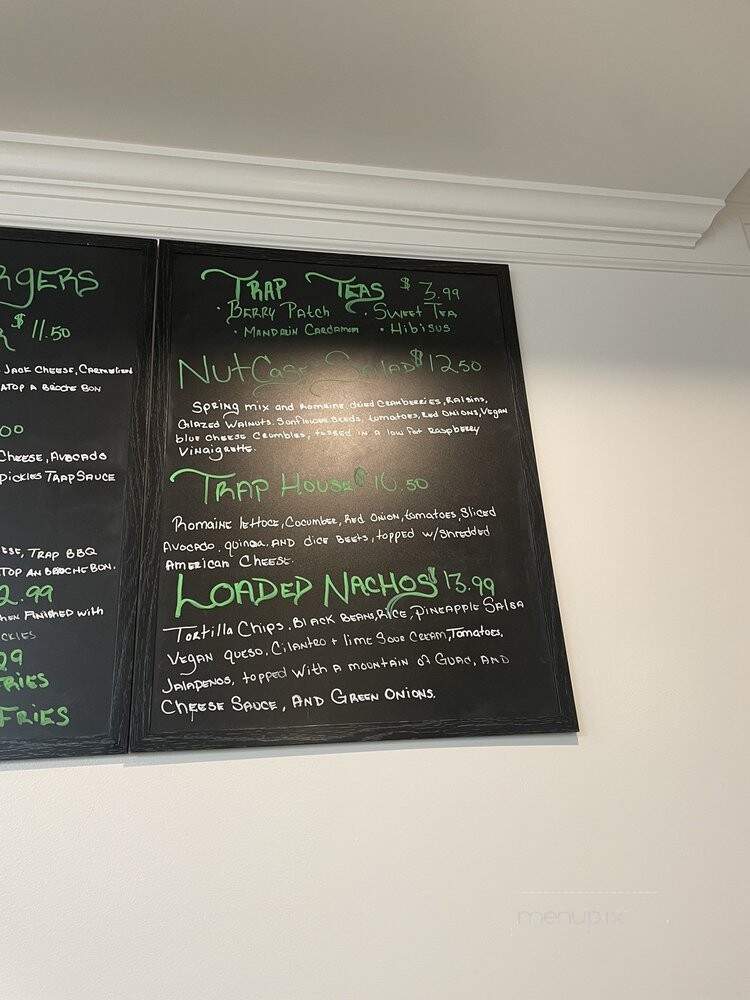 RGERS
$11.50
JACK CHEESE, CARMELIZED
ATOP A BROCHE BON
CHEESE, AVOCADO
PICKLES TRAP SAUCE
TRAP BBQ
TOP AN BROCHE BON.
2.99
FINISHED WITH
CKLES
FRIES
FRIES
TRAP TEAS $3.99
· BERRY PATCH · SWEET TEA
· MANDARIN CARDAMOM · HIBISUS
NUTCASE SALAD $12.50
SPRING MIX AND ROMAINE, DRIED CRANBERRIES, RAISINS,
GLAZED WALNUTS, SUNFLOWER SEEDS, TOMATOES, RED ONIONS, VEGAN
BLUE CHEESE CRUMBLES, TOSSED IN A LOW FAT RASPBERRY
VINAIGRETTE.
TRAP HOUSE $10.50
ROMAINE LETTUCE, CUCUMBER, RED ONION, TOMATOES, SLICED
AVOCADO, QUINOA, AND DICE BEETS, TOPPED W/SHREDDED
AMERICAN CHEESE.
LOADED NACHOS $13.99
TORTILLA CHIPS, BLACK BEANS, RICE, PINEAPPLE SALSA
VEGAN QUESO, CILANTRO + LIME SOUR CREAM, TOMATOES,
JALAPENOS, TOPPED WITH A MOUNTAIN OF GUAC, AND
CHEESE SAUCE, AND GREEN ONIONS.
menupix